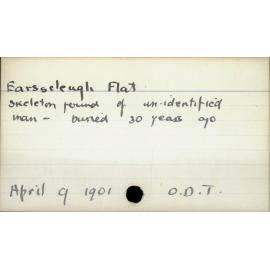 Earsscleugh Flat
Skeleton found of un-identified
man - buried 30 years ago
April 9 1901 O.D.T.